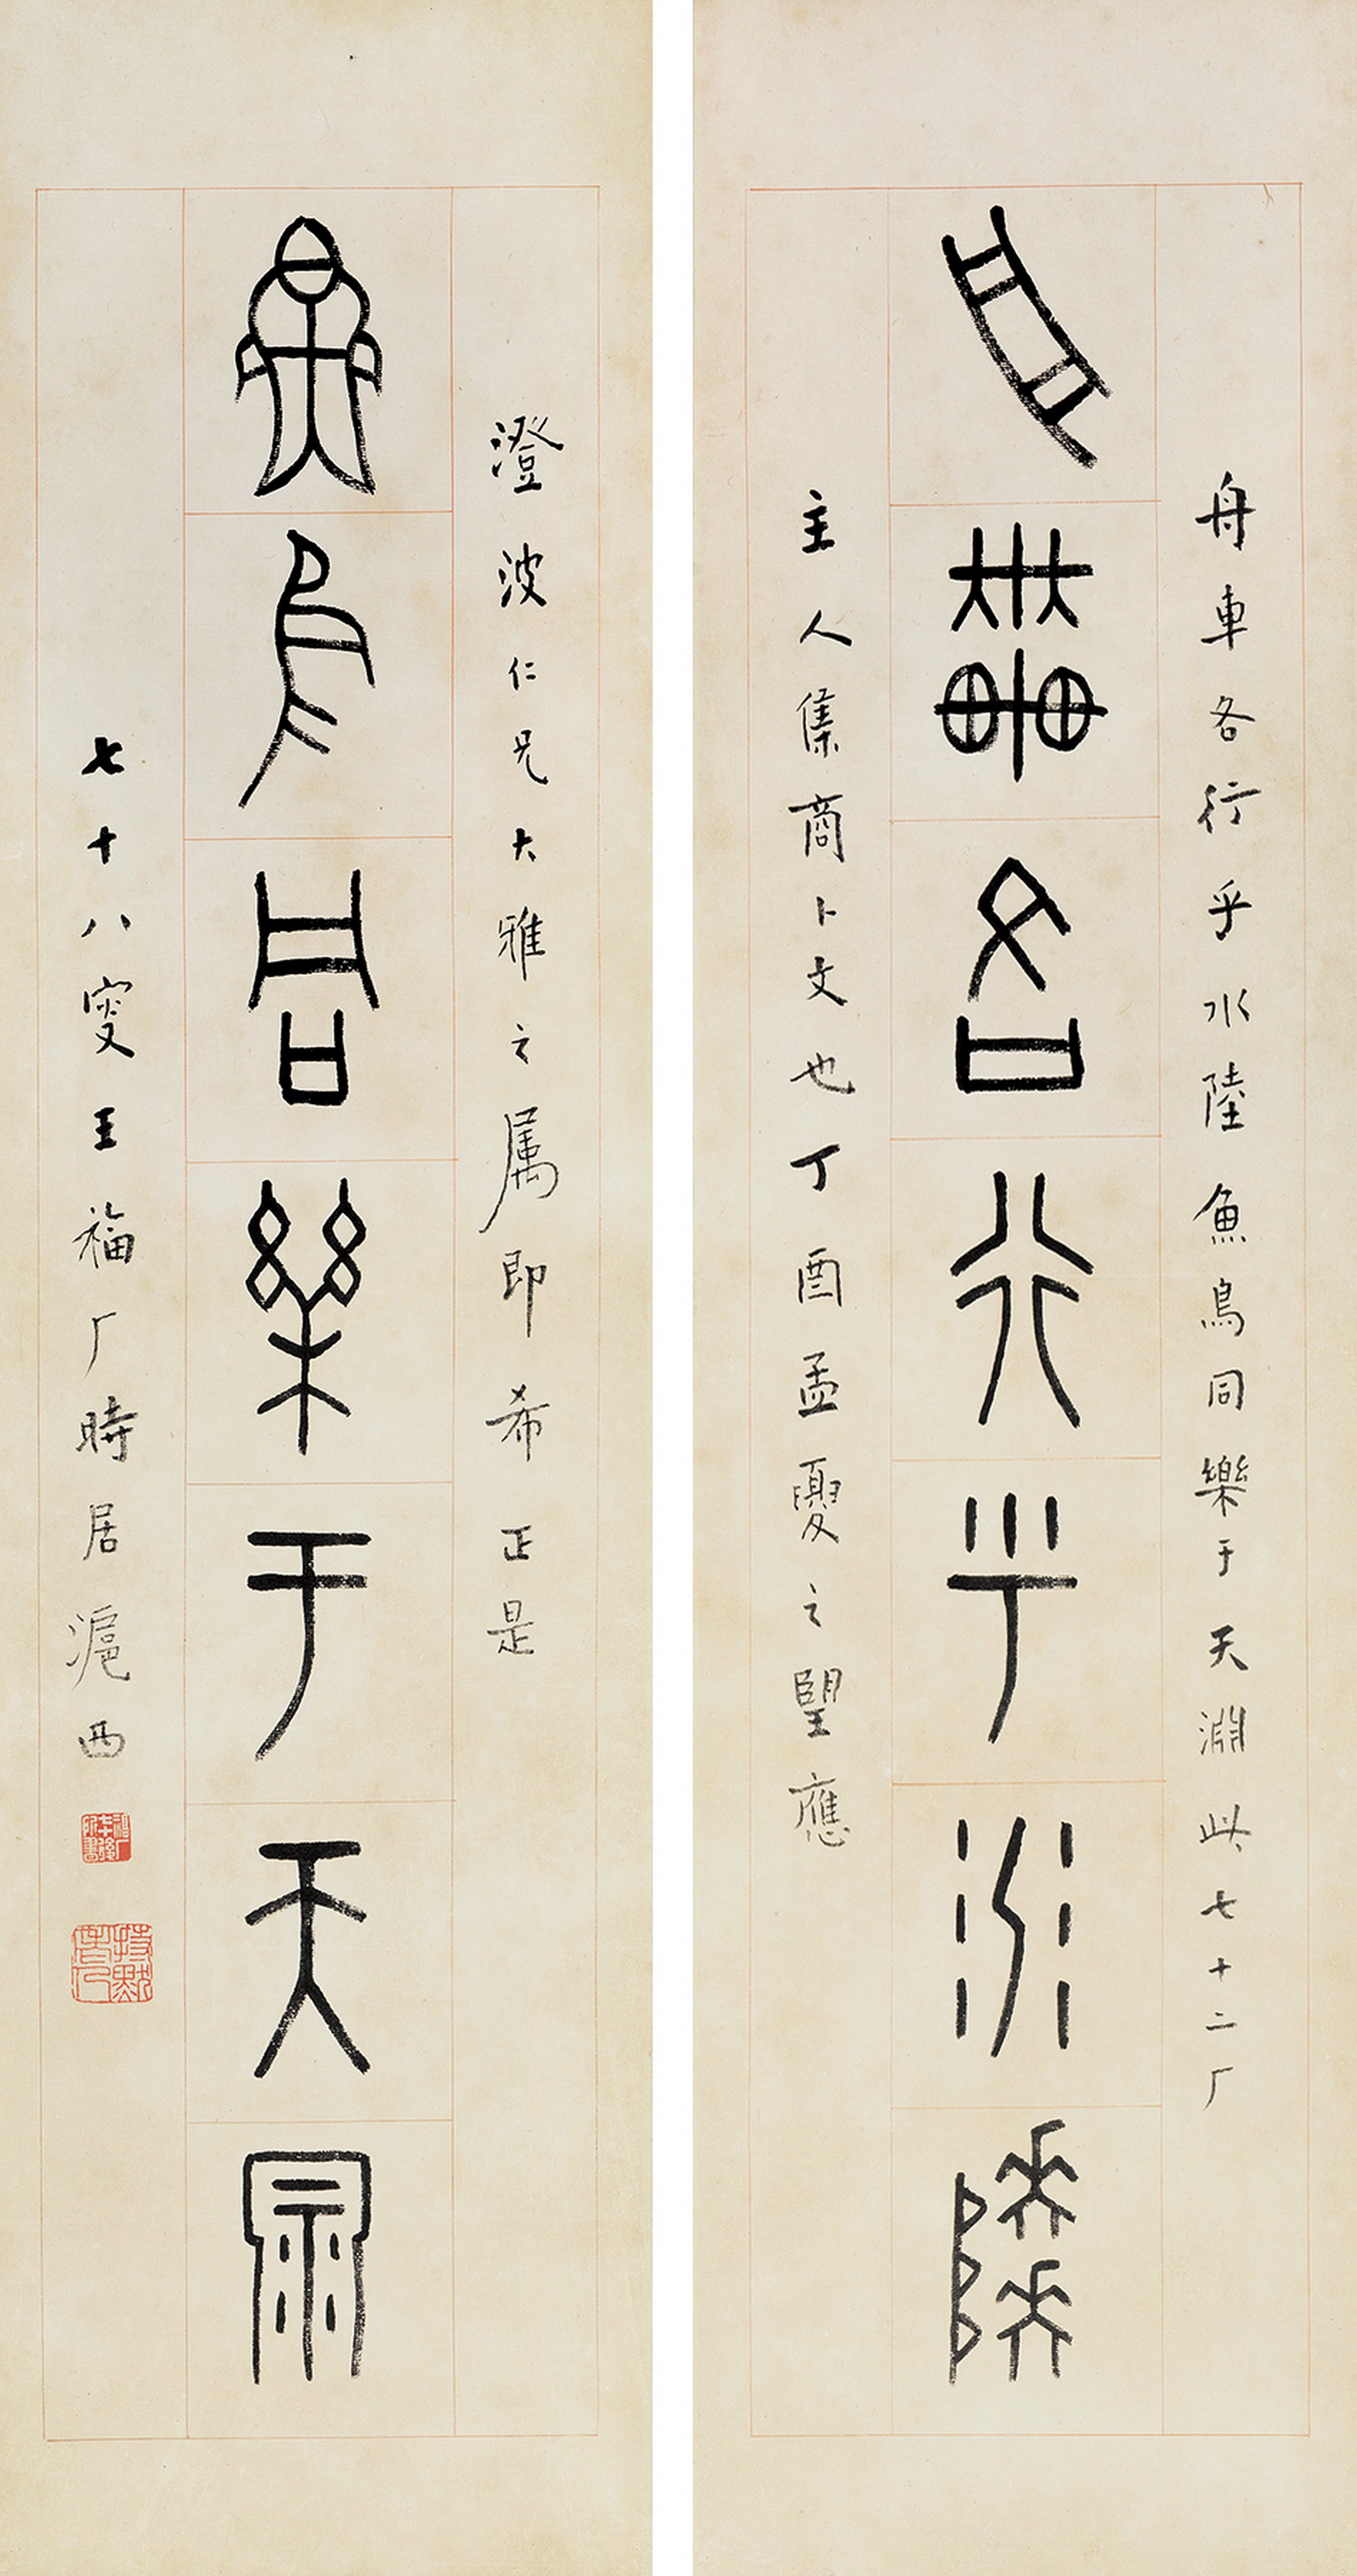 舟車各行乎水陸魚鳥同樂于天淵此七十二厂
舟車各行乎水陸
主人集商卜文也丁酉孟夏之望應
澄波仁兄大雅之属即希正是
魚鳥同樂于天淵
七十八叟王福厂時居滬西
福厂七十後所書
持默